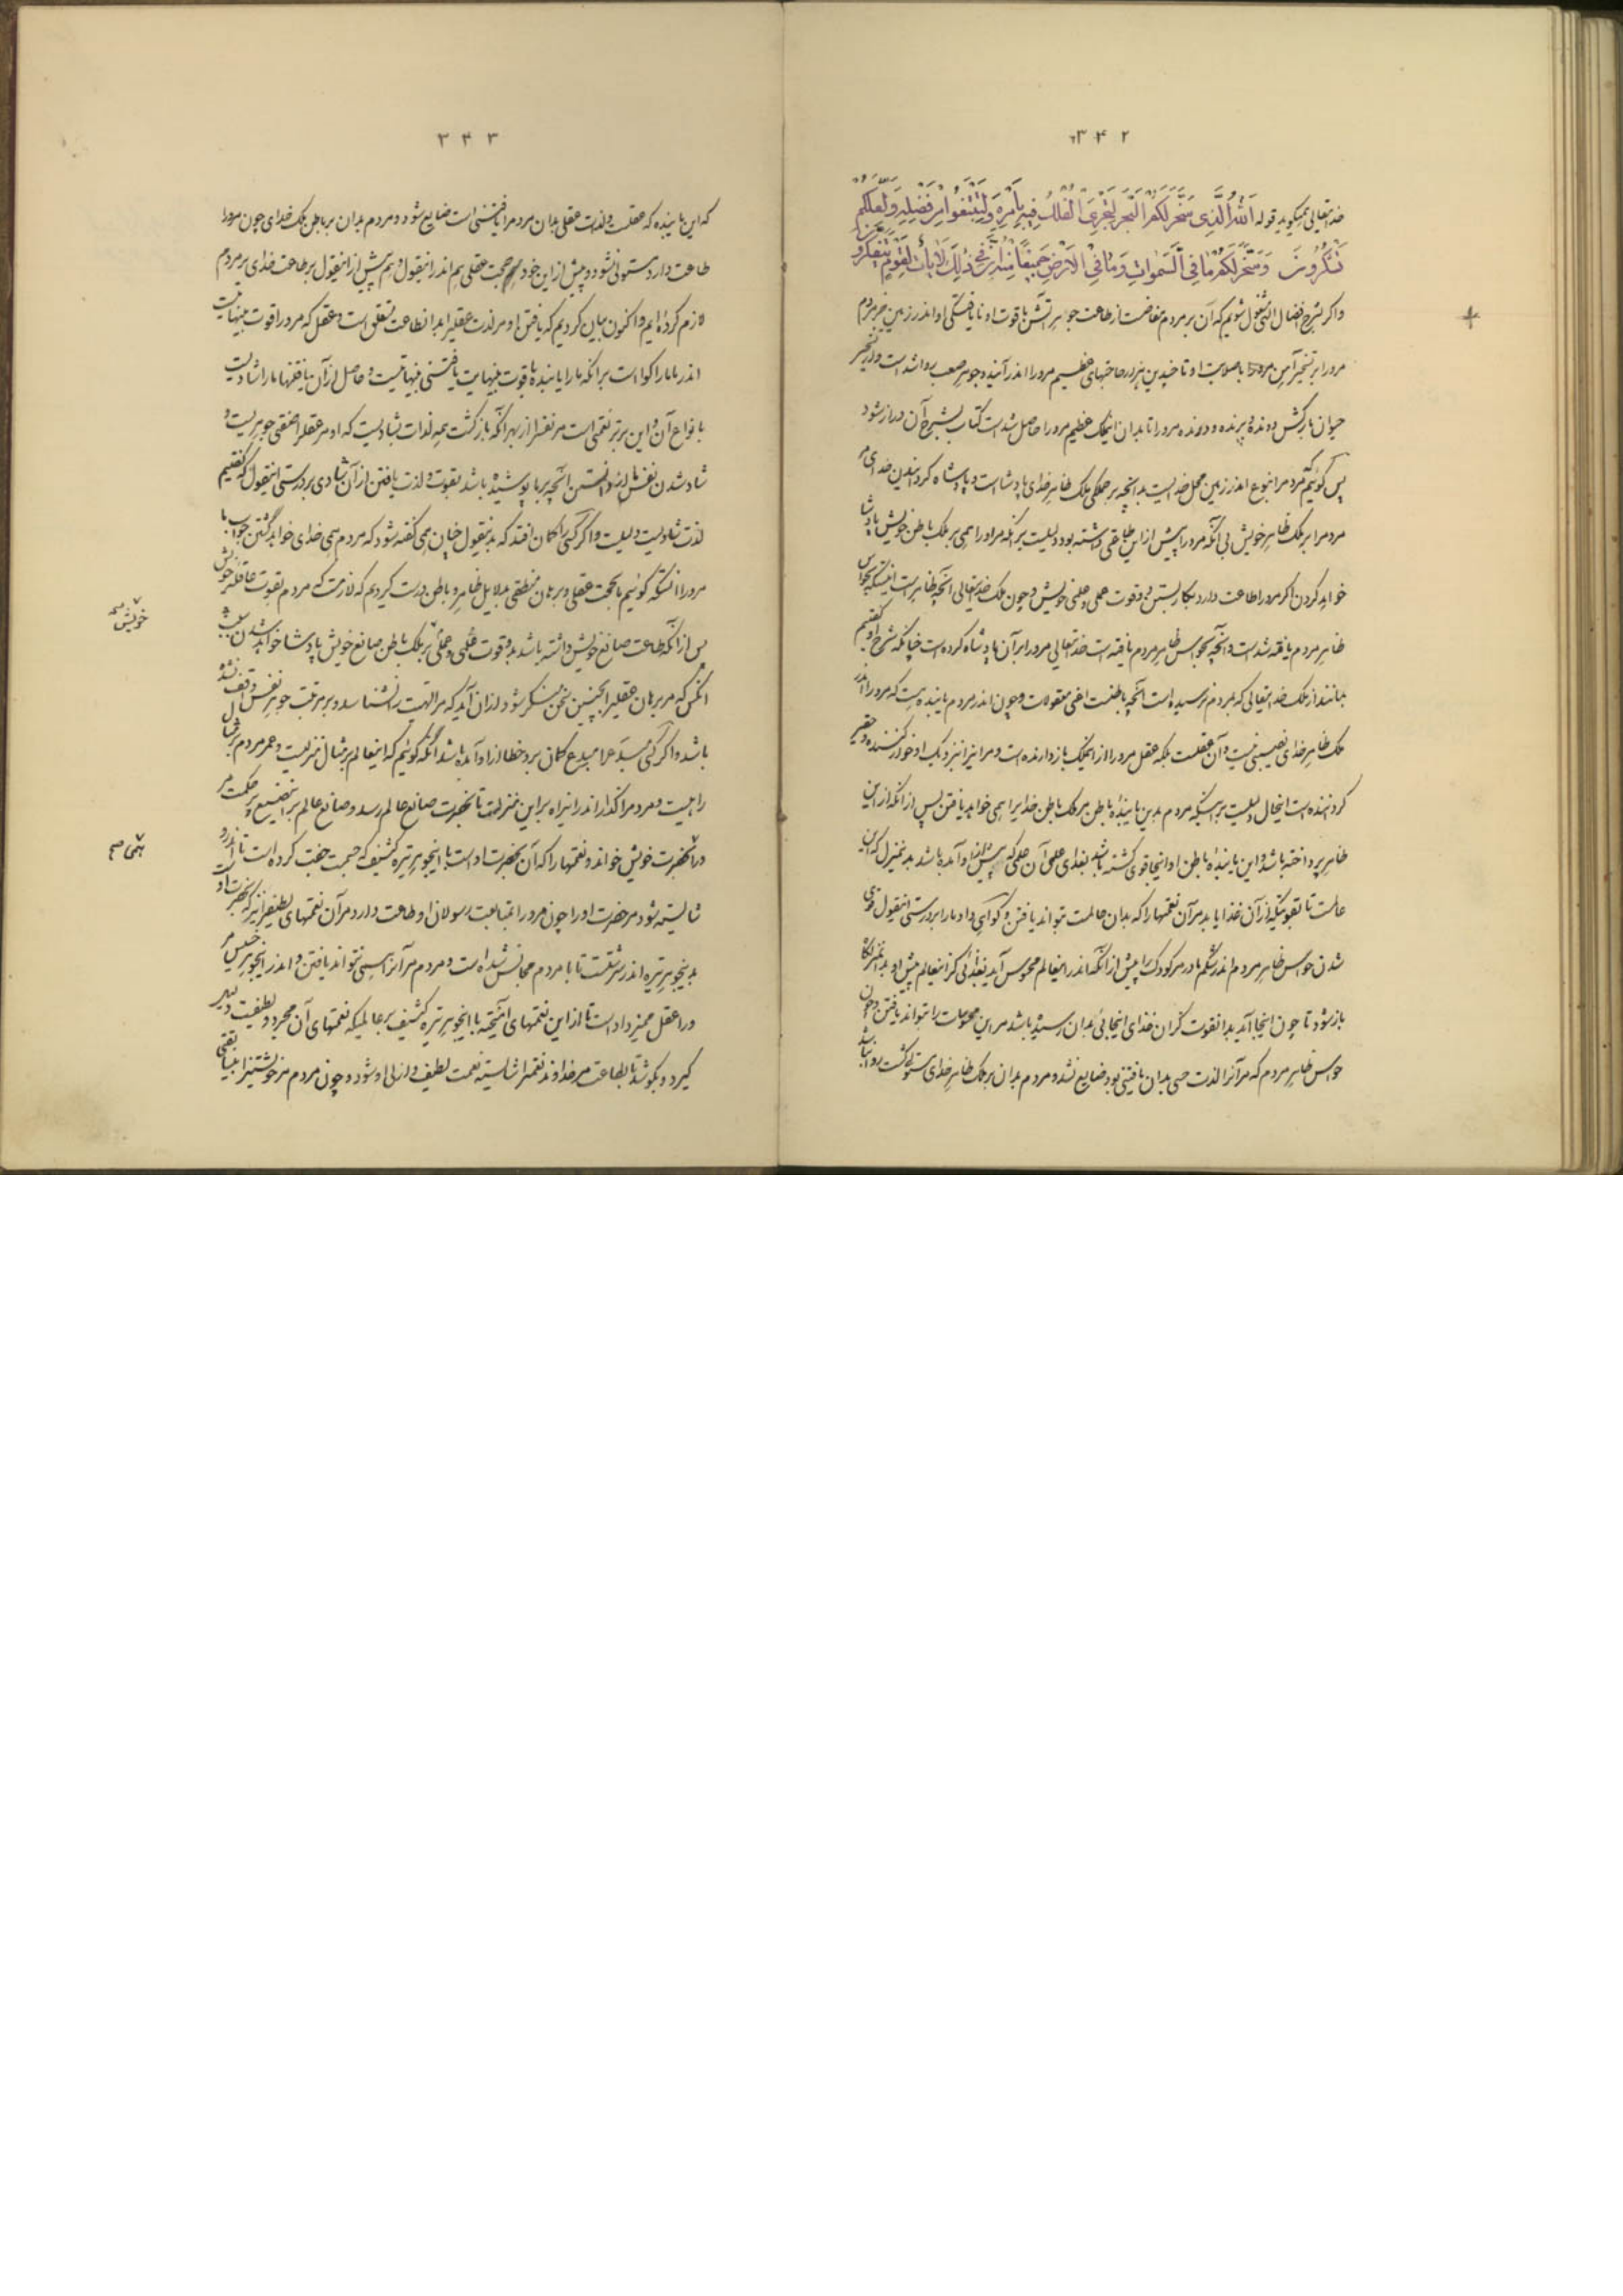 ۳۴۲
خدایتعالی همیگوید قوله اَللّٰهُ الَّذِی سَخَّرَ لَکُمُ الْبَحْرَ لِتَجْرِیَ الْفُلْکُ فِیهِ بِاَمْرِهِ وَلِتَبْتَغُوا مِنْ فَضْلِهِ وَلَعَلَّکُمْ
تَشْکُرُونَ وَسَخَّرَ لَکُمْ مَا فِی السَّمٰوَاتِ وَمَا فِی الْاَرْضِ جَمِیعًا مِنْهُ اِنَّ فِی ذٰلِکَ لَاٰیَاتٍ لِقَوْمٍ یَتَفَکَّرُونَ
و اگر بشرح افضال الهی مشغول شویم که آن بر مردم مفاضست از طاعت جوهر آتش با قوت او نایافتگی او اندر زمین مردم
مرورا بر تسخیر آهن مرورا با صلابت او تا چندین هنر و صاحتهای عظیم مرورا اندر آینده جوهر صعب رواشد است و اندر تسخیر
حیوان بارکش و دونده و پرنده و درنده مرورا تا بدان اینملک عظیم مرورا حاصل شدست کتاب بشرح آن دراز شود
پس گوئیم که مردم را نبوع اندر زمین محل خدائیست بدانچه بر جملگی ملک ظاهر خدای پادشا است و پادشاه گردانیدن خدای مر
مردم را بر ملک ظاهر خویش بی آنکه مرورا پیش از این طاعتی داشته بود دلیلست بر آنکه مراورا همی بر ملک باطن خویش پادشا
خواهد کردن اگر مرورا طاعت دارد بکار بستن دو قوت عملی و علمی خویش و چون ملک خدایتعالی آنچه ظاهر است آنستکه بحواس
ظاهر مردم یافته شدست و آنچه بحواس ظاهر مردم یافته است خدایتعالی مرورا بر آن پادشاه کرده است چنانکه شرح او گفتیم
بماند از ملک خدایتعالی که بمردم نرسیده است آنچه باطنست اعنی معقولات و چون اندر مردم یابنده هست که مرورا اندر
ملک ظاهر خدای نصیبی نیست و آن عقلست بلکه عقل مرورا از اینملک بازدارنده است و مر این را نزدیک او خوار کننده و حقیر
گرداننده است اینحال دلیلست بر آنکه مردم بدین یابنده باطن مر ملک باطن خدایرا همی خواهد یافتن پس از آنکه از این
ظاهر پرداخته باشد و این یابنده باطن او اینجا قوی گشته باشد بغذای علمی آن علمی که پیش از او آمده باشد بدینمنزل که این
عالمست تا بقوتیکه از آن غذا یابد مر آن نعمتها را که بدان عالمست تواند یافتن و گواهی داد ما را بر درستی اینقول قوی
شدن حواس ظاهر مردم اندر شکم مادر مر کودک را پیش از آنکه اندر اینعالم محسوس آید بغذائی کز اینعالم پیش او بدانمنزلگاه
باز شود تا چون اینجا آید بدانقوت کز آن غذای اینجائی بدان رسیده باشد مر این محسوسات را تواند یافتن و چون
حواس ظاهر مردم که مر آنرا لذت حسی بدان یافتنی بود ضایع نشد و مردم بدان بر ملک ظاهر خدای مستولی گشت روا نباشد
۳۴۳
که این یابنده که عقلست و لذت عقلی بدان مردم را یافتنی است ضایع شود و مردم بدان بر باطن ملک خدای چون مرورا
طاعت دارد مستولی نشود و پیش از این خود حجت عقلی هم اندر اینقول و هم پیش از اینقول بر طاعت خدای بر مردم
لازم کرده ایم و اکنون بیان کردیم که یافتن او مر لذت عقلیرا بدانطاعت متعلق است و عقل که مرورا قوت بینهایتست
اندر ما ما را گواه است بر آنکه ما را یابنده با قوت بینهایت یافتنی بینهایتست و حاصل از آن یافتنها ما را شادیست
بانواع آن و این برتر نعمتی است مر نفس را از بهر آنکه بازگشت همه لذات بشادیست که او مر عقلرا صفتی جوهریست و
شاد شدن نفس ما از دانستن آنچه بر ما پوشیده باشد بقوت و لذت یافتن از آن شادی بر درستی اینقول که گفتیم
لذت شادیست دلیلست و اگر کسی را گمان افتد که بدینقول چنان همی گفته شود که مردم همی خدای خواهد گشتن جواب ما
مرورا آنستکه گوئیم ما بحجت عقلی و برهان منطقی بدلایل ظاهر و باطن درست کردیم که لازمست که مردم بقوت عاقله خویش
پس از آنکه طاعت صانع خویش داشته باشد بدو قوت علمی و عملی بر ملک باطن صانع خویش پادشا خواهد شدن
خویش صح
آنکس که مر برهان عقلیرا بچنین سخن منکر شود از آن آید که مر الهیت را نشناسد و بر مرتبت جوهر نفس واقف نشده
باشد و اگر کسی مبدَع را مبدِع گمان برد خطا از او آمده باشد آنگه گوئیم که اینعالم بر مثال منزلیست و عمر مردم بر مثال
راهیست و مر مردم را گذار اندر اینراه بر این منزلست تا بحضرت صانع عالم رسد و صانع عالم بر این صنع پر حکمت مر
ورا بحضرت خویش خواند و نعمتها را که آن بحضرت اوست با اینجوهر تیره کثیف که جسمست جفت کرده است تا اندرو
بهی صح
شایسته شود مر حضرت او را چون مرورا بمتابعت رسولان او طاعت دارد مر آن نعمتهای لطیفرا نیز که بحضرت او
بدینجوهر تیره اندر سرشتست تا با مردم مجانس شده است و مردم مر آنرا همی نتواند یافتن و اندر اینجوهر خسیس مر
ورا عقل ممیز داده است تا از این نعمتهای آمیخته با اینجوهر تیره کثیف بر عالمیکه نعمتهای آن مجرد و لطیفست دلیل
گیرد و بکوشد تا بطاعت مر خداوند نعمترا شایسته نعمت لطیف و ازلی او شود و چون مردم مر خویشتنرا